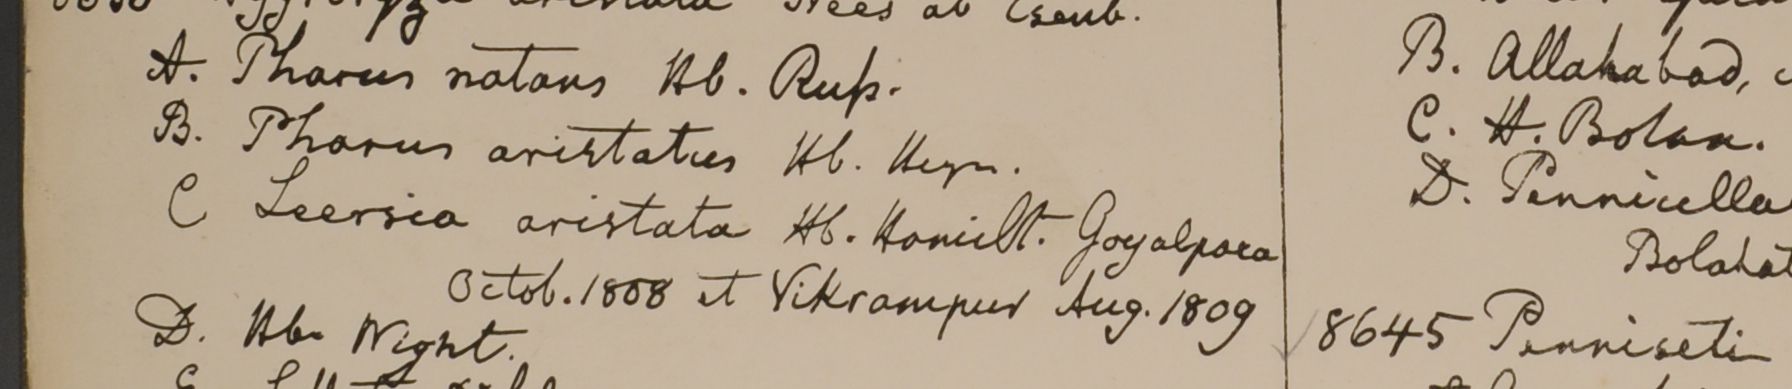 aristata Nees ab Esenb.
A. Pharus natans Hb. Rup.
B. Pharus aristatus Hb. Heyn.
C Leersia aristata Hb. Hamilt. Goyalpara
Octob. 1808 et Vikrampur Aug. 1809
D. Hb. Wight.
B. Allahabad,
C. H. Botan.
D. Pennicella
8645 Penniseti